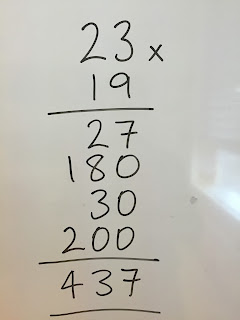 23 x
19
27
180
30
200
437